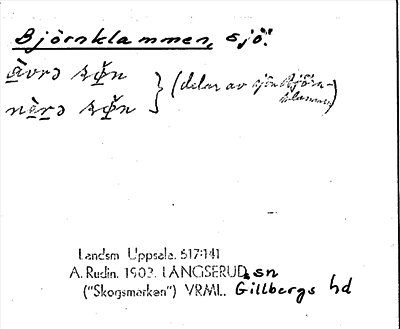 Björnklammen, sjö!
åvrə ɹø̀n } (delar av sjön Björn-
nèrə ɹø̀n klammen)
Landsm Uppsala. 517:141
A. Rudin. 1902. LÅNGSERUD. sn
("Skogsmarken") VRML. Gillbergs hd